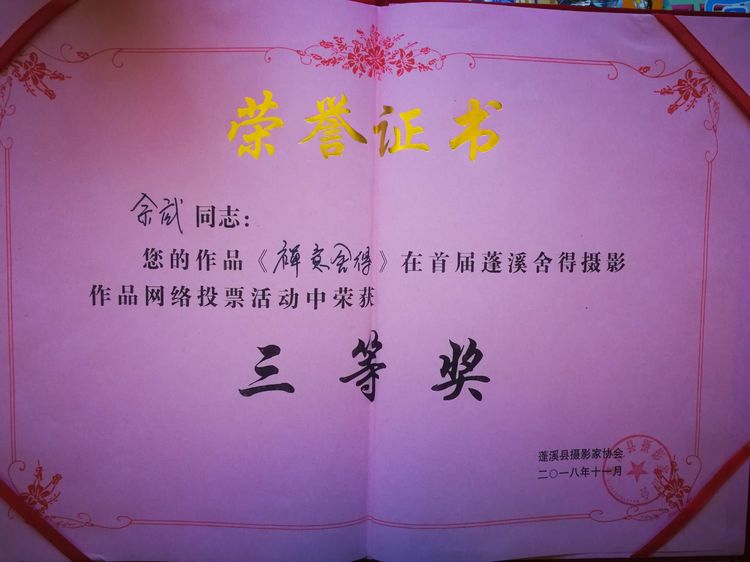 荣誉证书
余武同志:
您的作品《禅意舍得》在首届蓬溪舍得摄影
作品网络投票活动中荣获
三等奖
蓬溪县摄影家协会
二〇一八年十一月